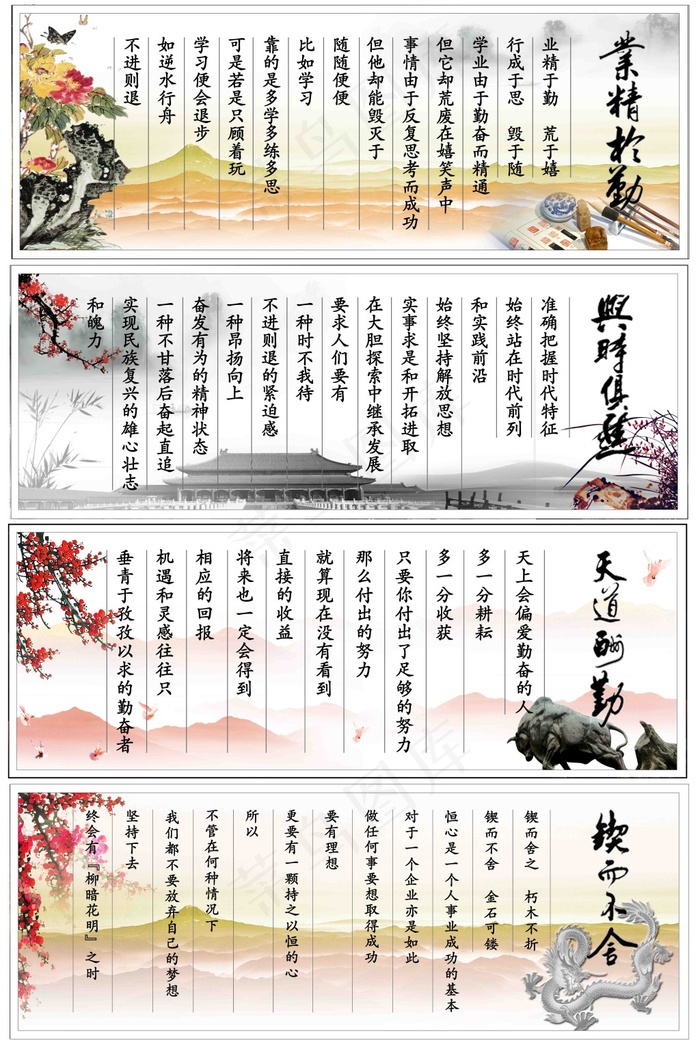 業精於勤
业精于勤 荒于嬉
行成于思 毁于随
学业由于勤奋而精通
但它却荒废在嬉笑声中
事情由于反复思考而成功
但他却能毁灭于
随随便便
比如学习
靠的是多学多练多思
可是若是只顾着玩
学习便会退步
如逆水行舟
不进则退
與時俱進
准确把握时代特征
始终站在时代前列
和实践前沿
始终坚持解放思想
实事求是和开拓进取
在大胆探索中继承发展
要求人们要有
一种时不我待
不进则退的紧迫感
一种昂扬向上
奋发有为的精神状态
一种不甘落后奋起直追
实现民族复兴的雄心壮志
和魄力
天道酬勤
天上会偏爱勤奋的人
多一分耕耘
多一分收获
只要你付出了足够的努力
那么付出的努力
就算现在没有看到
直接的收益
将来也一定会得到
相应的回报
机遇和灵感往往只
垂青于孜孜以求的勤奋者
锲而不舍
锲而舍之 朽木不折
锲而不舍 金石可镂
恒心是一个人事业成功的基本
对于一个企业亦是如此
做任何事要想取得成功
要有理想
更要有一颗持之以恒的心
所以
不管在何种情况下
我们都不要放弃自己的梦想
坚持下去
终会有『柳暗花明』之时
菜鸟图库